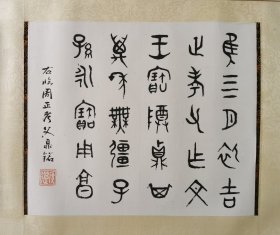 隹三月初吉
正考父乍文
王寶尊鼎其
萬年無疆子
孫永寶用享
右臨周正考父鼎銘